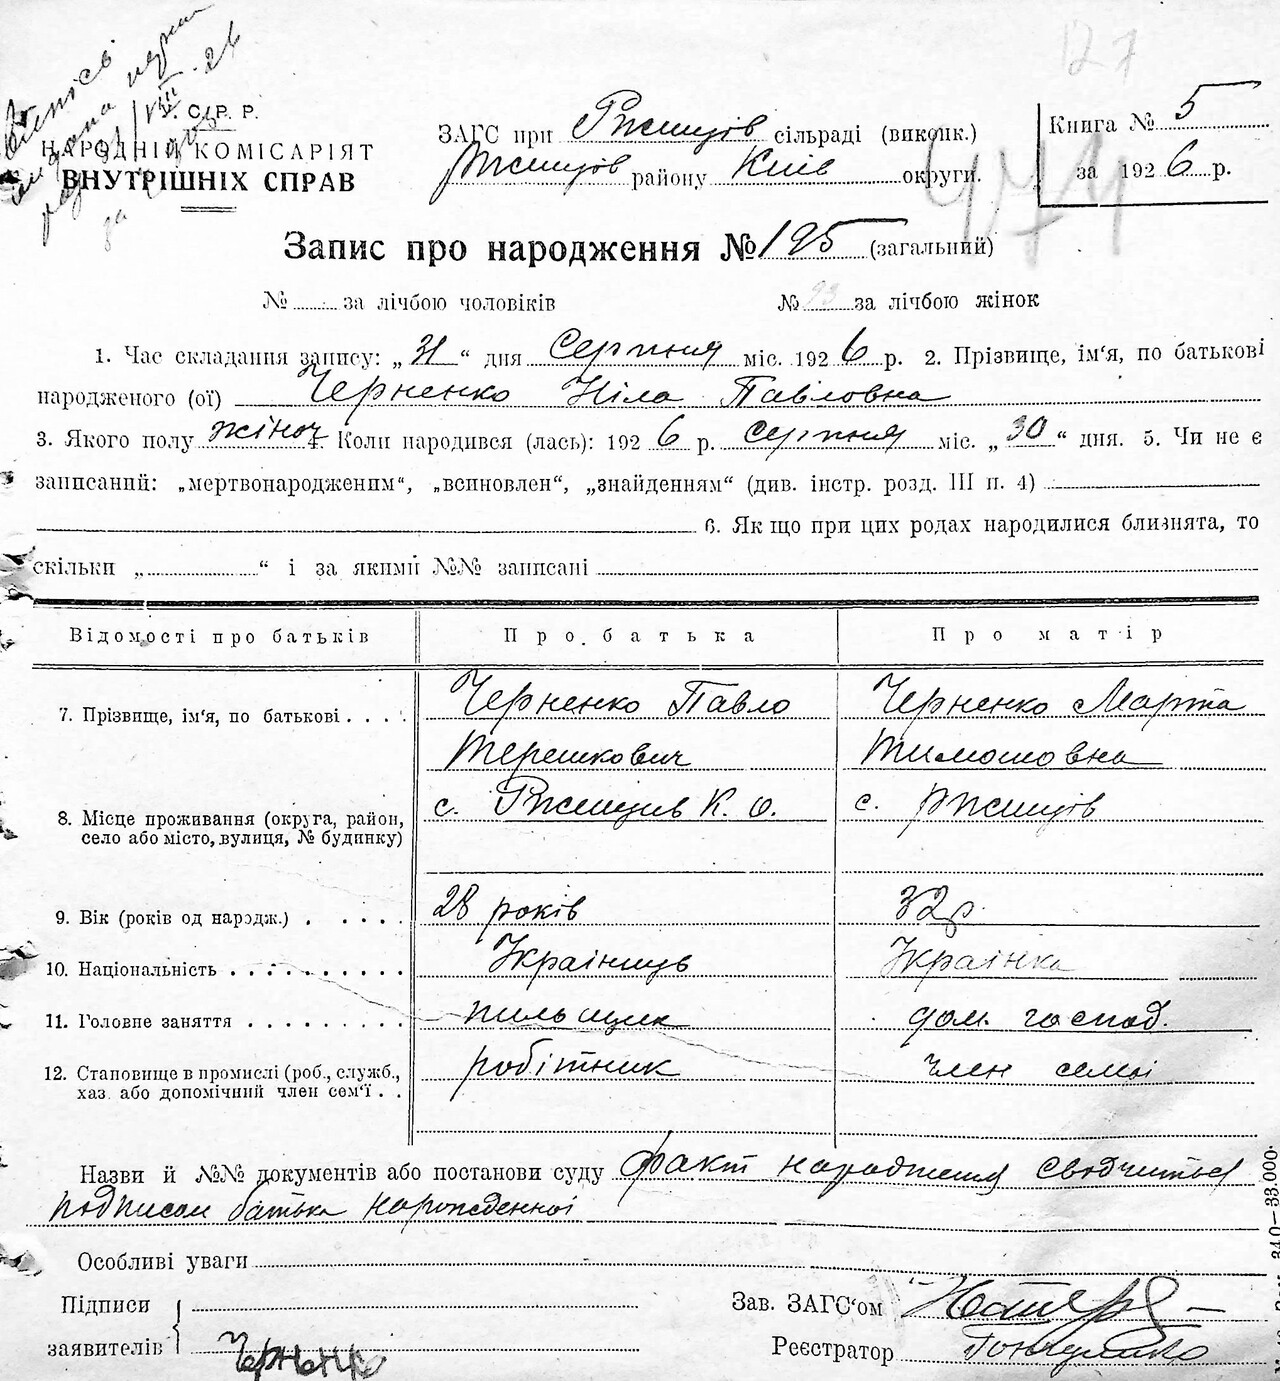 127
474
У. С. Р. Р.
НАРОДНІЙ КОМІСАРІЯТ
ВНУТРІШНІХ СПРАВ
ЗАГС при Ржищів сільраді (виконк.)
Ржищов району Київ округи.
Книга № 5
за 1926 р.
Запис про народження № 195 (загальний)
№ за лічбою чоловіків
№ 93 за лічбою жінок
1. Час складання запису: „31“ дня Серпня міс. 1926 р. 2. Прізвище, ім‘я, по батькові
народженого (ої) Черненко Ніла Павловна
3. Якого полу жіноч 4. Коли народився (лась): 1926 р. серпня міс. „30“ дня. 5. Чи не є
записаний: „мертвонародженим“, „всиновлен“, „знайденням“ (див. інстр. розд. III п. 4)
6. Як що при цих родах народилися близнята, то
скільки „ “ і за якими №№ записані
Відомості про батьків Про батька Про матір
7. Прізвище, ім‘я, по батькові . . . . Черненко Павло Черненко Марта
Терешкович Тимошовна
8. Місце проживання (округа, район, село або місто, вулиця, № будинку) с. Ржищив К. О. с. Ржищів
9. Вік (років од народж.) . . . . . 28 років 32 р.
10. Національність . . . . . . . . . . Українець Українка
11. Головне заняття . . . . . . . . . пильщик дом. господ.
12. Становище в промислі (роб., служб., хаз. або допомічний член сем‘ї . . робітник член семьі
Назви й №№ документів або постанови суду факт народження сводчиться
подписом батька народженноі
Особливі уваги
Підписи
заявителів Черненко
Зав. ЗАГС‘ом
Реєстратор